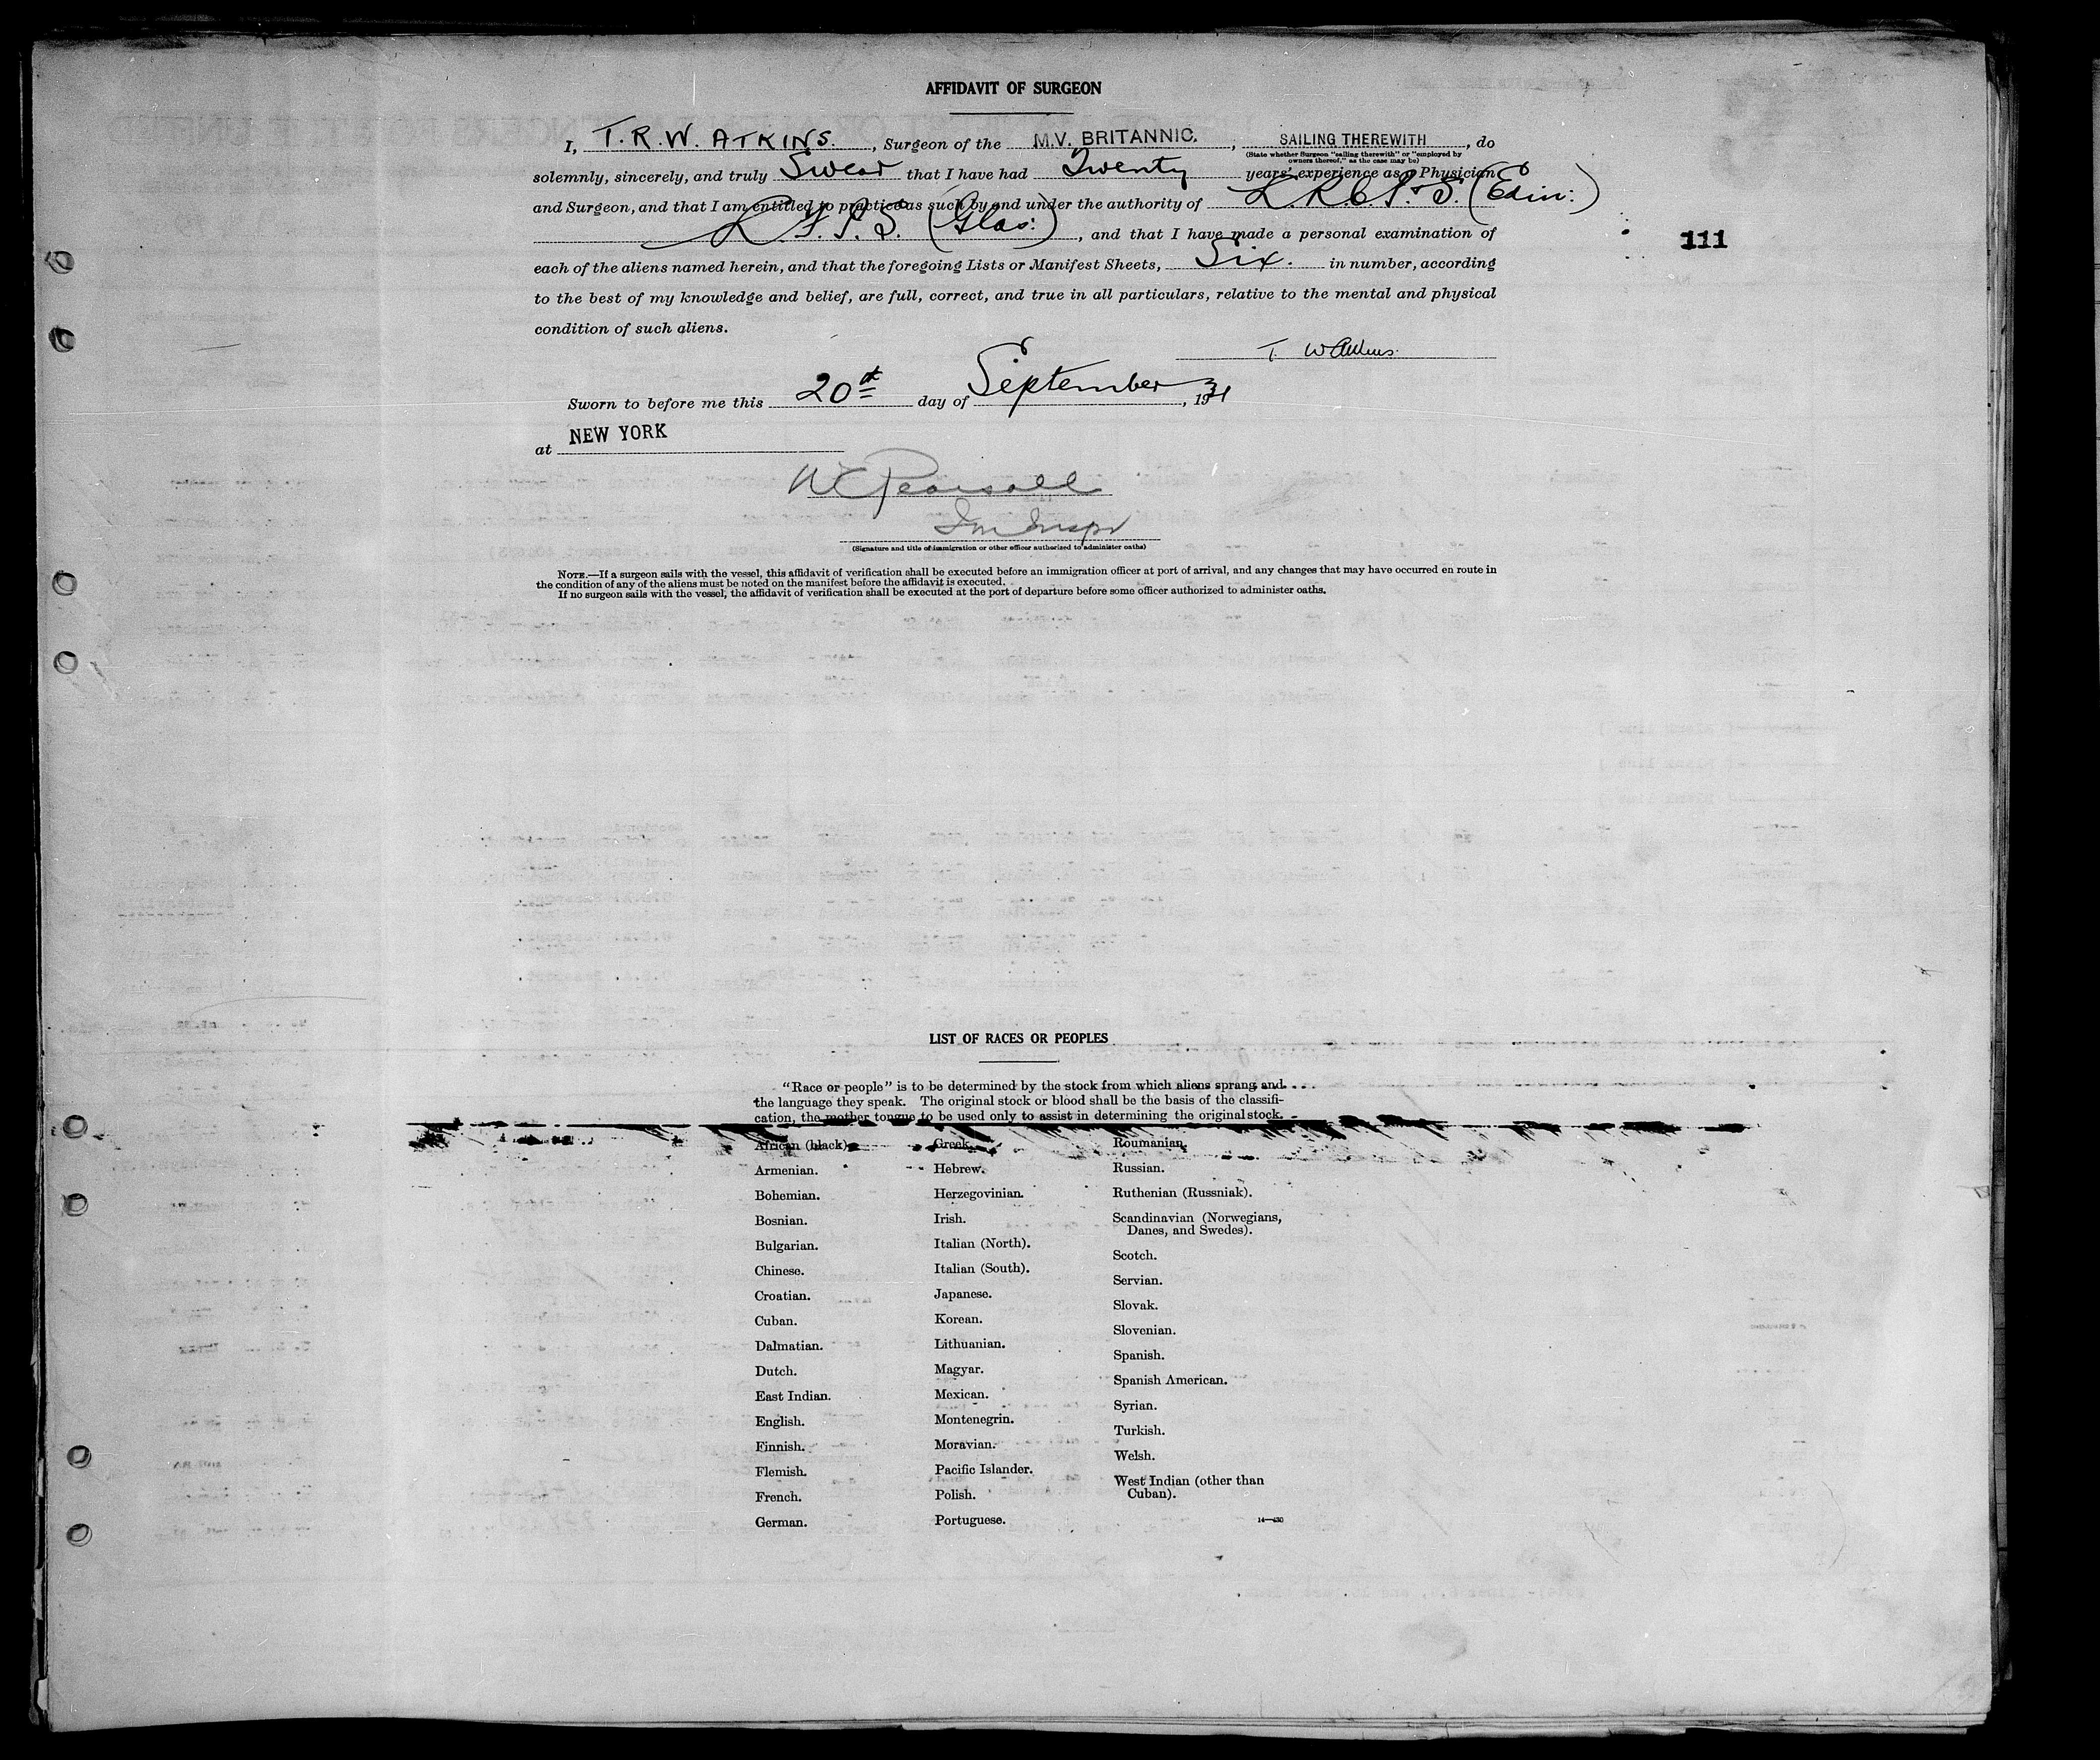 AFFIDAVIT OF SURGEON
I, T.R.W. ATKINS., Surgeon of the M.V. BRITANNIC., SAILING THEREWITH, do
(State whether Surgeon "sailing therewith" or "employed by
owners thereof," as the case may be)
solemnly, sincerely, and truly Swear that I have had Twenty years' experience as a Physician
and Surgeon, and that I am entitled to practice as such by and under the authority of L.R.C.P.&S. (Edin:)
L.F.P.S. (Glas:), and that I have made a personal examination of
111
each of the aliens named herein, and that the foregoing Lists or Manifest Sheets, Six. in number, according
to the best of my knowledge and belief, are full, correct, and true in all particulars, relative to the mental and physical
condition of such aliens.
T. W Atkins.
Sworn to before me this 20th day of September, 1931
at NEW YORK
W C Pearsall
Im Inspr
(Signature and title of immigration or other officer authorized to administer oaths)
NOTE.—If a surgeon sails with the vessel, this affidavit of verification shall be executed before an immigration officer at port of arrival, and any changes that may have occurred en route in
the condition of any of the aliens must be noted on the manifest before the affidavit is executed.
If no surgeon sails with the vessel, the affidavit of verification shall be executed at the port of departure before some officer authorized to administer oaths.
LIST OF RACES OR PEOPLES
"Race or people" is to be determined by the stock from which aliens sprang and
the language they speak. The original stock or blood shall be the basis of the classifi-
cation, the mother tongue to be used only to assist in determining the original stock.
African (black).
Armenian.
Bohemian.
Bosnian.
Bulgarian.
Chinese.
Croatian.
Cuban.
Dalmatian.
Dutch.
East Indian.
English.
Finnish.
Flemish.
French.
German.
Greek.
Hebrew.
Herzegovinian.
Irish.
Italian (North).
Italian (South).
Japanese.
Korean.
Lithuanian.
Magyar.
Mexican.
Montenegrin.
Moravian.
Pacific Islander.
Polish.
Portuguese.
Roumanian.
Russian.
Ruthenian (Russniak).
Scandinavian (Norwegians,
Danes, and Swedes).
Scotch.
Servian.
Slovak.
Slovenian.
Spanish.
Spanish American.
Syrian.
Turkish.
Welsh.
West Indian (other than
Cuban).
14—430